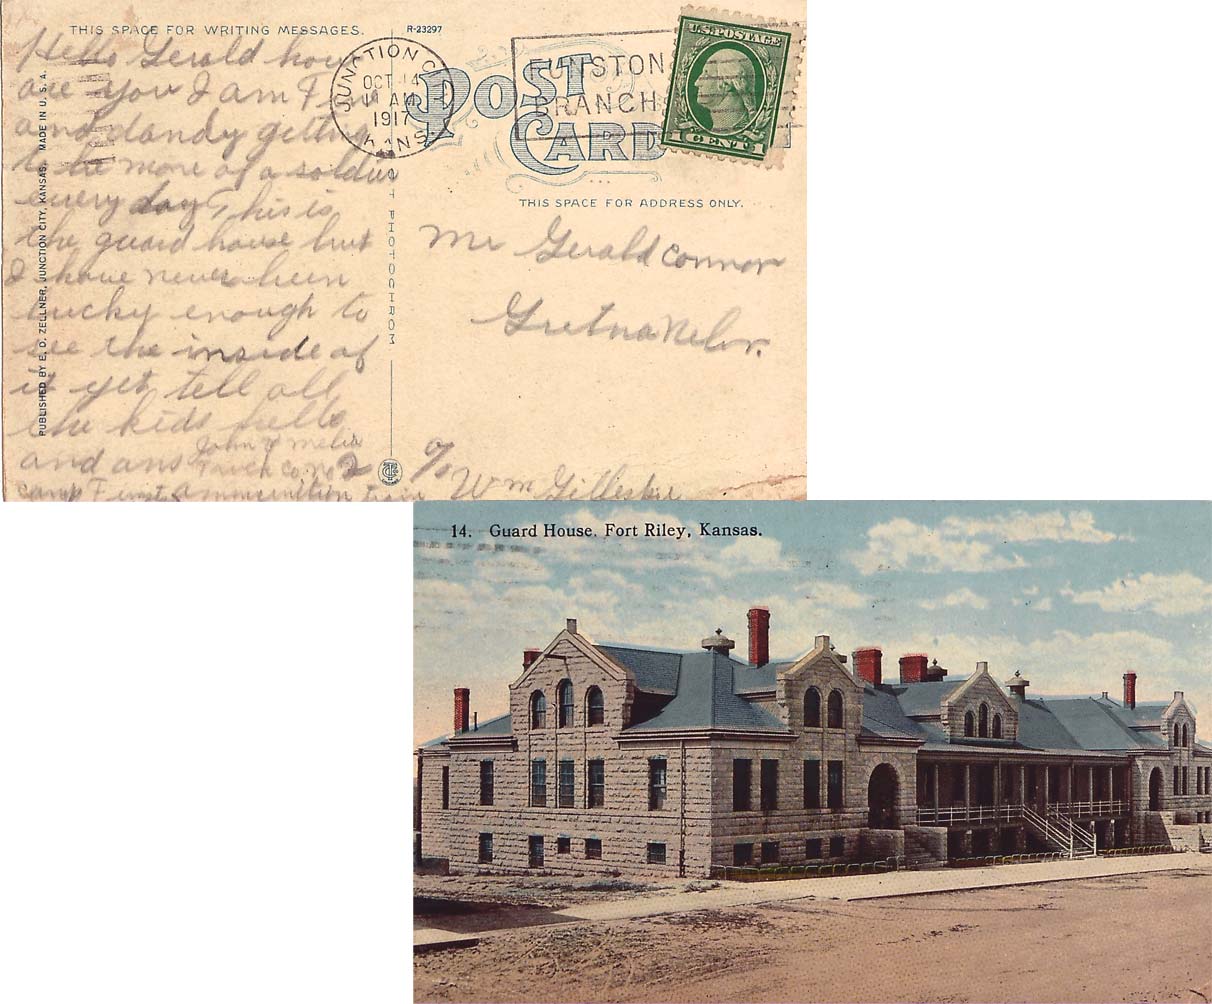 THIS SPACE FOR WRITING MESSAGES.
R-23297
Hello Gerald how
are you I am Fine
and dandy getting
to be more of a soldier
every day This is
the guard house but
I have never been
lucky enough to
see the inside of
it yet tell all
the kids hello
and ans
John
Truck Co. No 2
camp Funston ammunition train
PUBLISHED BY E. D. ZELLNER, JUNCTION CITY, KANSAS. MADE IN U. S. A.
PHOTOCHROM
JUNCTION CITY
OCT 14
11 AM
1917
KANS.
FUNSTON
BRANCH
POST
CARD
U.S. POSTAGE
1 CENT 1
THIS SPACE FOR ADDRESS ONLY.
Mr Gerald Connor
Gretna Nebr.
% Wm Gillespie
14. Guard House. Fort Riley, Kansas.